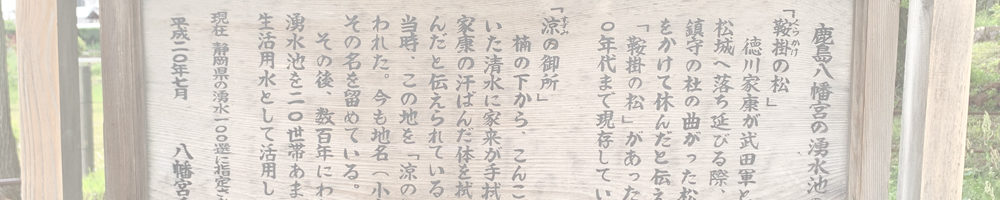 鹿島八幡宮の湧水池の
「鞍掛の松」
くらかけ
徳川家康が武田軍と
松城へ落ち延びる際、
鎮守の杜の曲がった松
をかけて休んだと伝え
「鞍掛の松」があった
〇年代まで現存してい
「涼の御所」
すずみ
楠の下から、こんこ
いた清水に家来が手拭
家康の汗ばんだ体を拭
んだと伝えられている
当時、この地を「涼の
われた。今も地名(小
その名を留めている。
その後、数百年にわ
湧水池を二〇世帯あま
生活用水として活用し
現在 静岡県の湧水一〇〇選に指定さ
平成二〇年七月 八幡宮